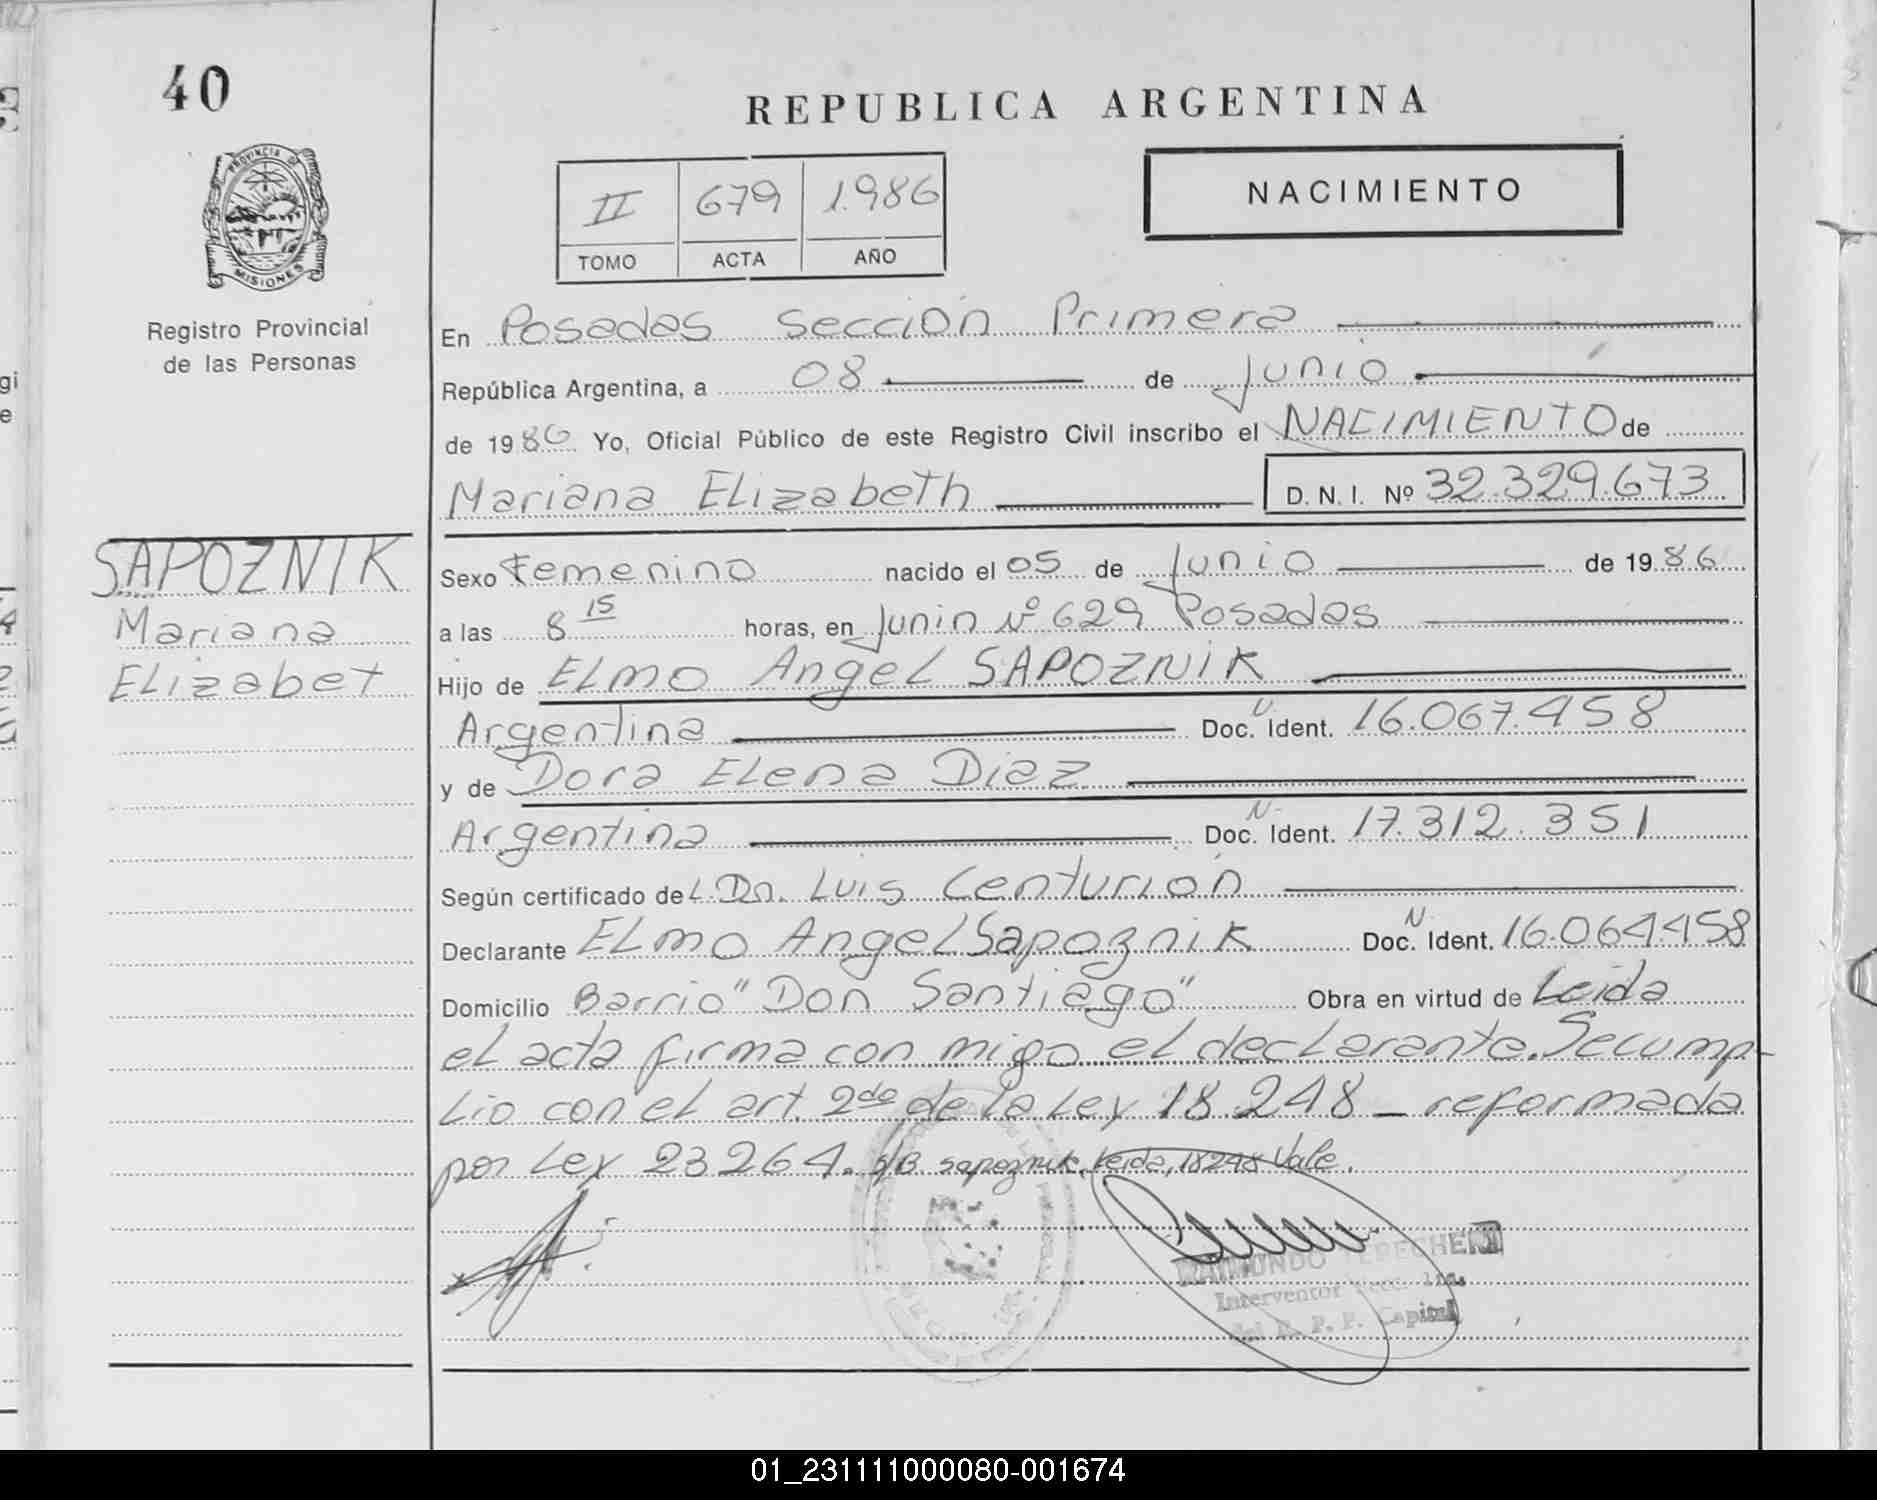 40
REPUBLICA ARGENTINA
PROVINCIA DE
MISIONES
Registro Provincial
de las Personas
II 679 1.986
TOMO ACTA AÑO
NACIMIENTO
En Posadas Sección Primera
República Argentina, a 08 de Junio
de 1986 Yo, Oficial Público de este Registro Civil inscribo el NACIMIENTO de
Mariana Elizabeth D. N. I. Nº 32.329.673
SAPOZNIK
Mariana
Elizabet
Sexo Femenino nacido el 05 de Junio de 1986
a las 8 15 horas, en Junin Nº 629 Posadas
Hijo de Elmo Angel SAPOZNIK
Argentina Doc. Ident. 16.067.458
y de Dora Elena Diaz
Argentina Doc. N. Ident. 17.312.351
Según certificado del Dr. Luis Centurión
Declarante Elmo Angel Sapoznik Doc. N. Ident. 16.064.458
Domicilio Barrio "Don Santiago" Obra en virtud de Leida
el acta firma con migo el declarante. Se cump-
lio con el art. 2do de la Ley 18.248 - reformada
por Ley 23264. S/B Sapoznik, Leida, 18248 Vale.
RAIMUNDO
Interventor Secc. 1ra.
del R. P. P. Capital
01_231111000080-001674